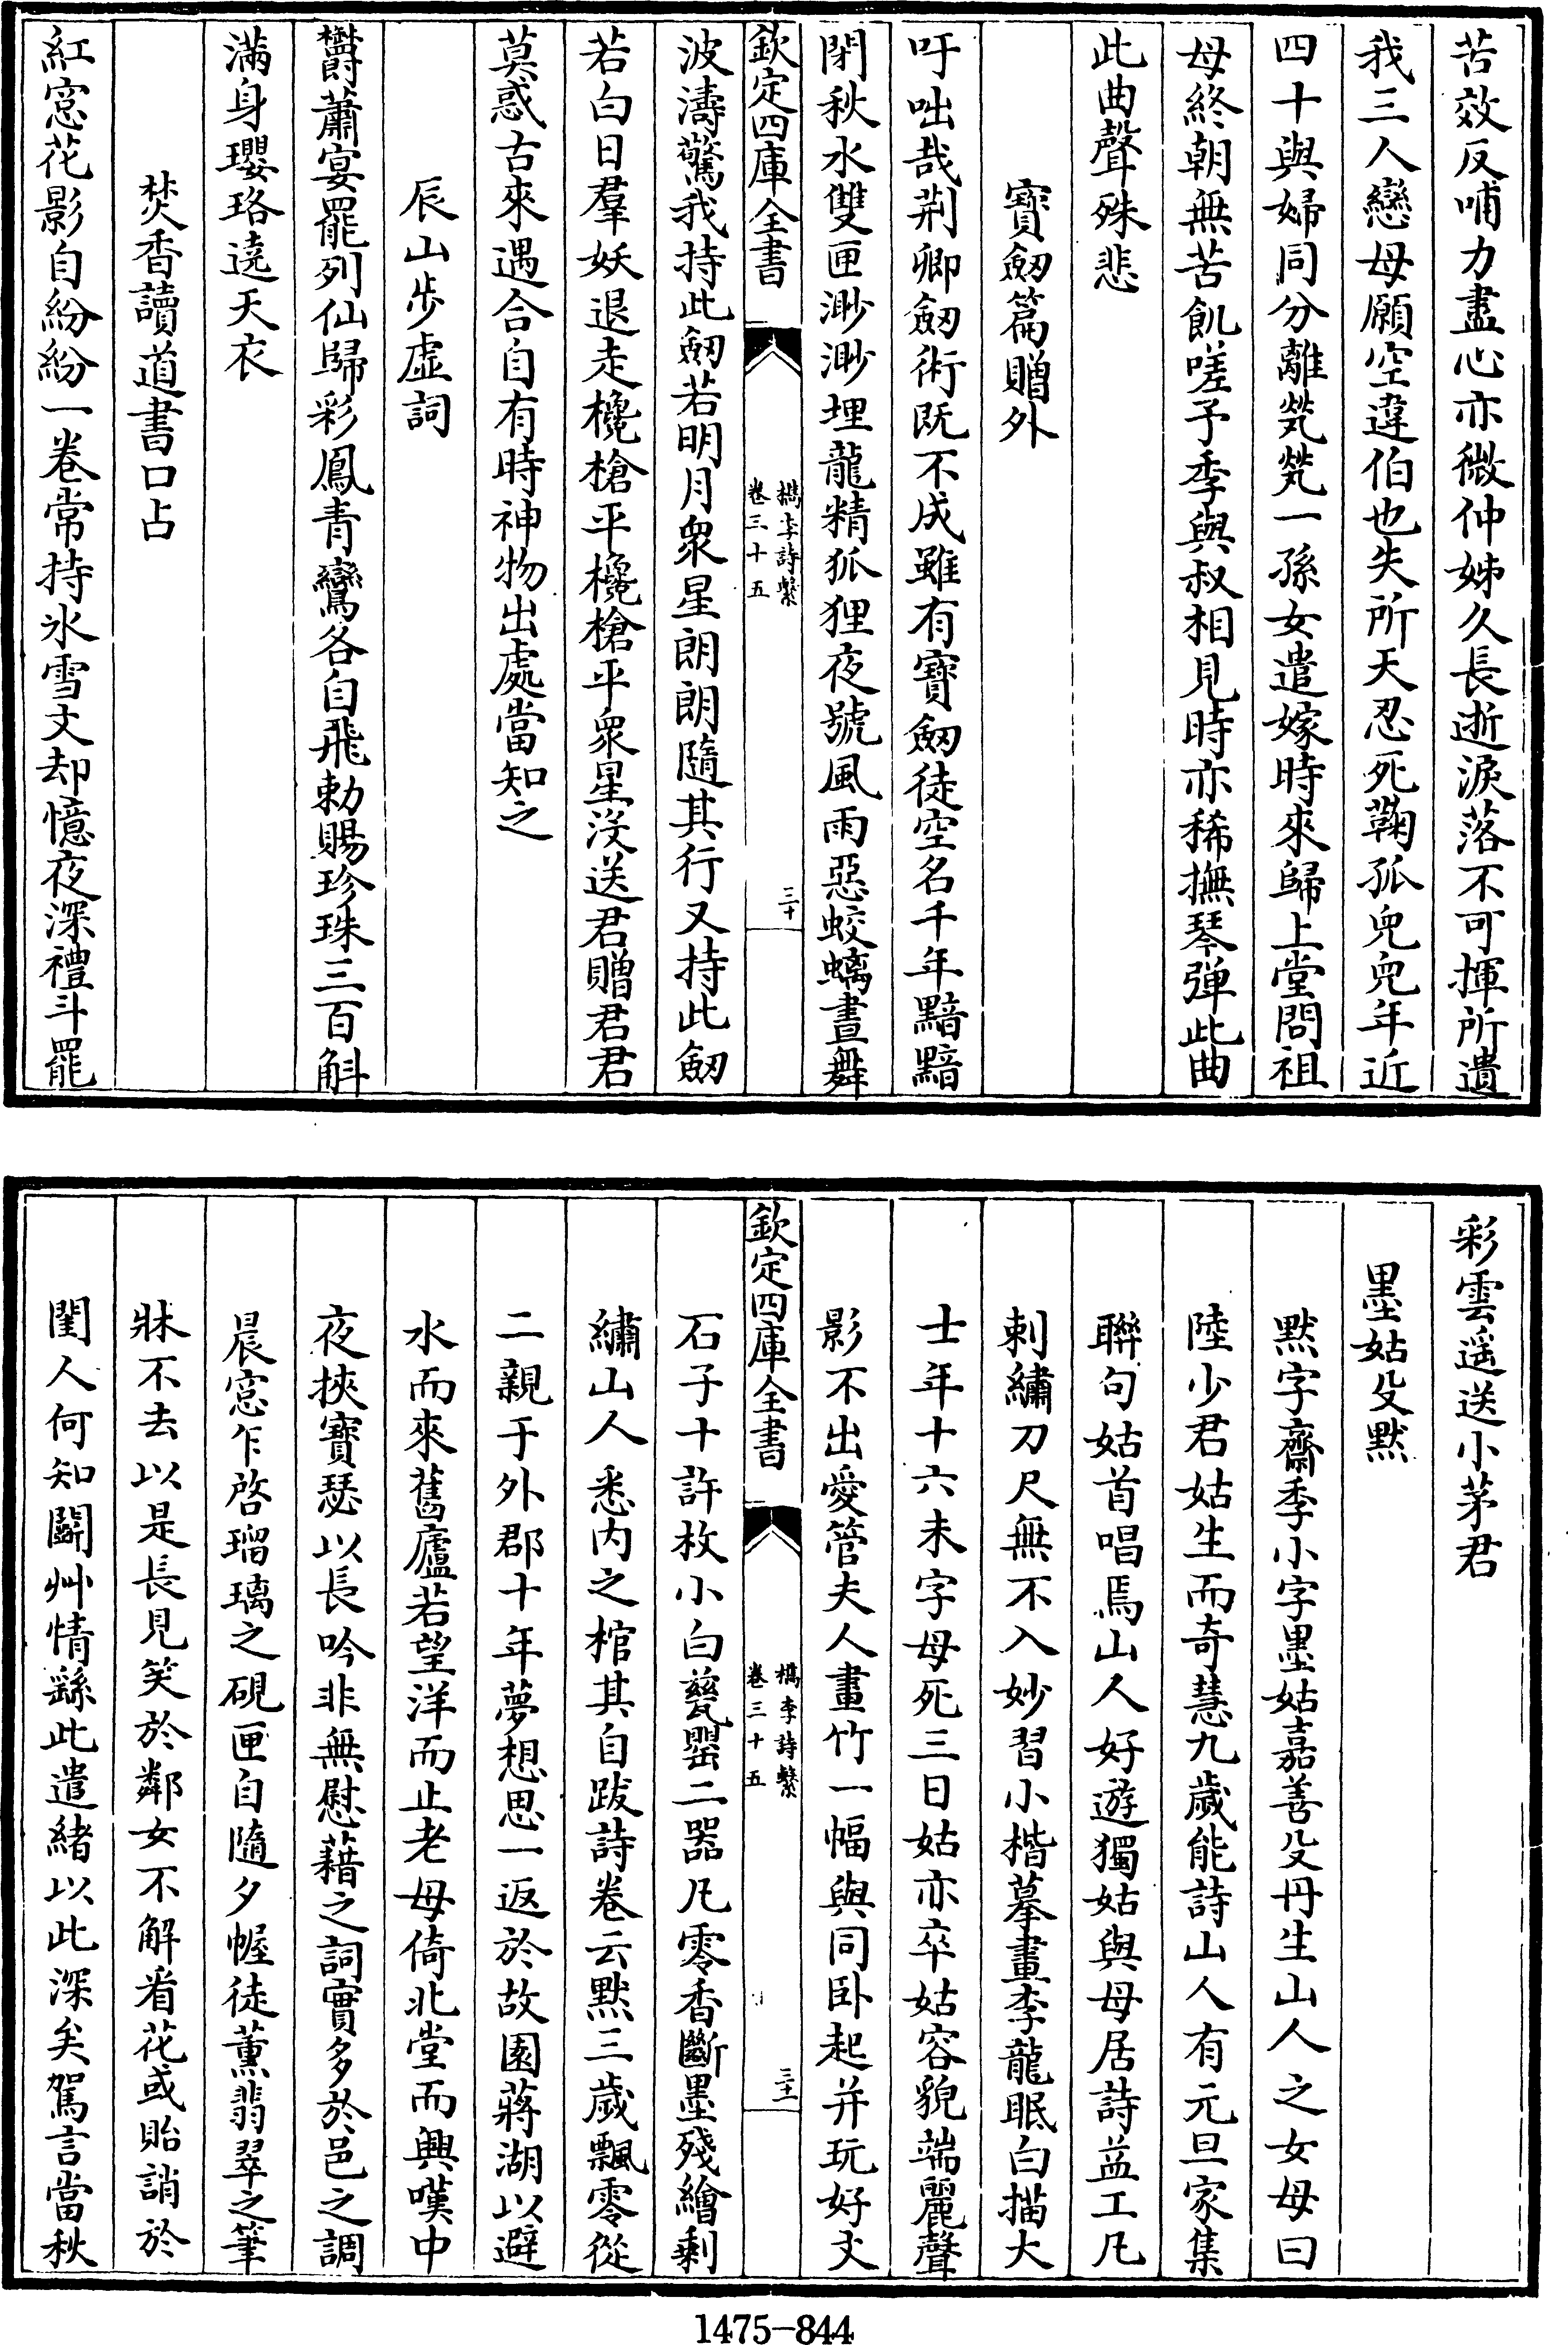 苦效反哺力盡心亦微仲姊久長逝淚落不可揮所遺
我三人戀母願空違伯也失所天忍死鞠孤兒兒年近
四十與婦同分離煢煢一孫女遣嫁時來歸上堂問祖
母終朝無苦飢嗟予季與叔相見時亦稀撫琴彈此曲
此曲聲殊悲
寶劒篇贈外
吁咄哉荆卿劒術既不成雖有寶劒徒空名千年黯黯
閉秋水雙匣渺渺埋龍精狐狸夜號風雨惡蛟螭晝舞
欽定四庫全書
檇李詩繫
卷三十五
三十
波濤驚我持此劒若明月衆星朗朗隨其行又持此劒
若白日羣妖退走欃槍平欃槍平衆星沒送君贈君君
莫惑古來遇合自有時神物出處當知之
辰山步虛詞
欝蕭宴罷列仙歸彩鳳青鸞各自飛勅賜珍珠三百斛
滿身瓔珞遶天衣
焚香讀道書口占
紅窓花影自紛紛一卷常持氷雪文却憶夜深禮斗罷
彩雲遥送小茅君
墨姑殳默
默字齋季小字墨姑嘉善殳丹生山人之女母曰
陸少君姑生而奇慧九歲能詩山人有元旦家集
聯句姑首唱焉山人好遊獨姑與母居詩益工凡
刺繡刀尺無不入妙習小楷摹畫李龍眠白描大
士年十六未字母死三日姑亦卒姑容貌端麗聲
影不出愛管夫人畫竹一幅與同卧起并玩好文
欽定四庫全書
檇李詩繫
卷三十五
三十一
石子十許枚小白甆罌二器凡零香斷墨殘繪剩
繡山人悉內之棺其自跋詩卷云默三歲飄零從
二親于外郡十年夢想思一返於故園蔣湖以避
水而來舊廬若望洋而止老母倚北堂而興嘆中
夜挾寶瑟以長吟非無慰藉之詞實多於邑之調
晨窓乍啓瑠璃之硯匣自隨夕幄徒薫翡翠之筆
牀不去以是長見笑於鄰女不解看花或貽誚於
閨人何知鬬艸情繇此遣緒以此深矣駕言當秋
1475-844